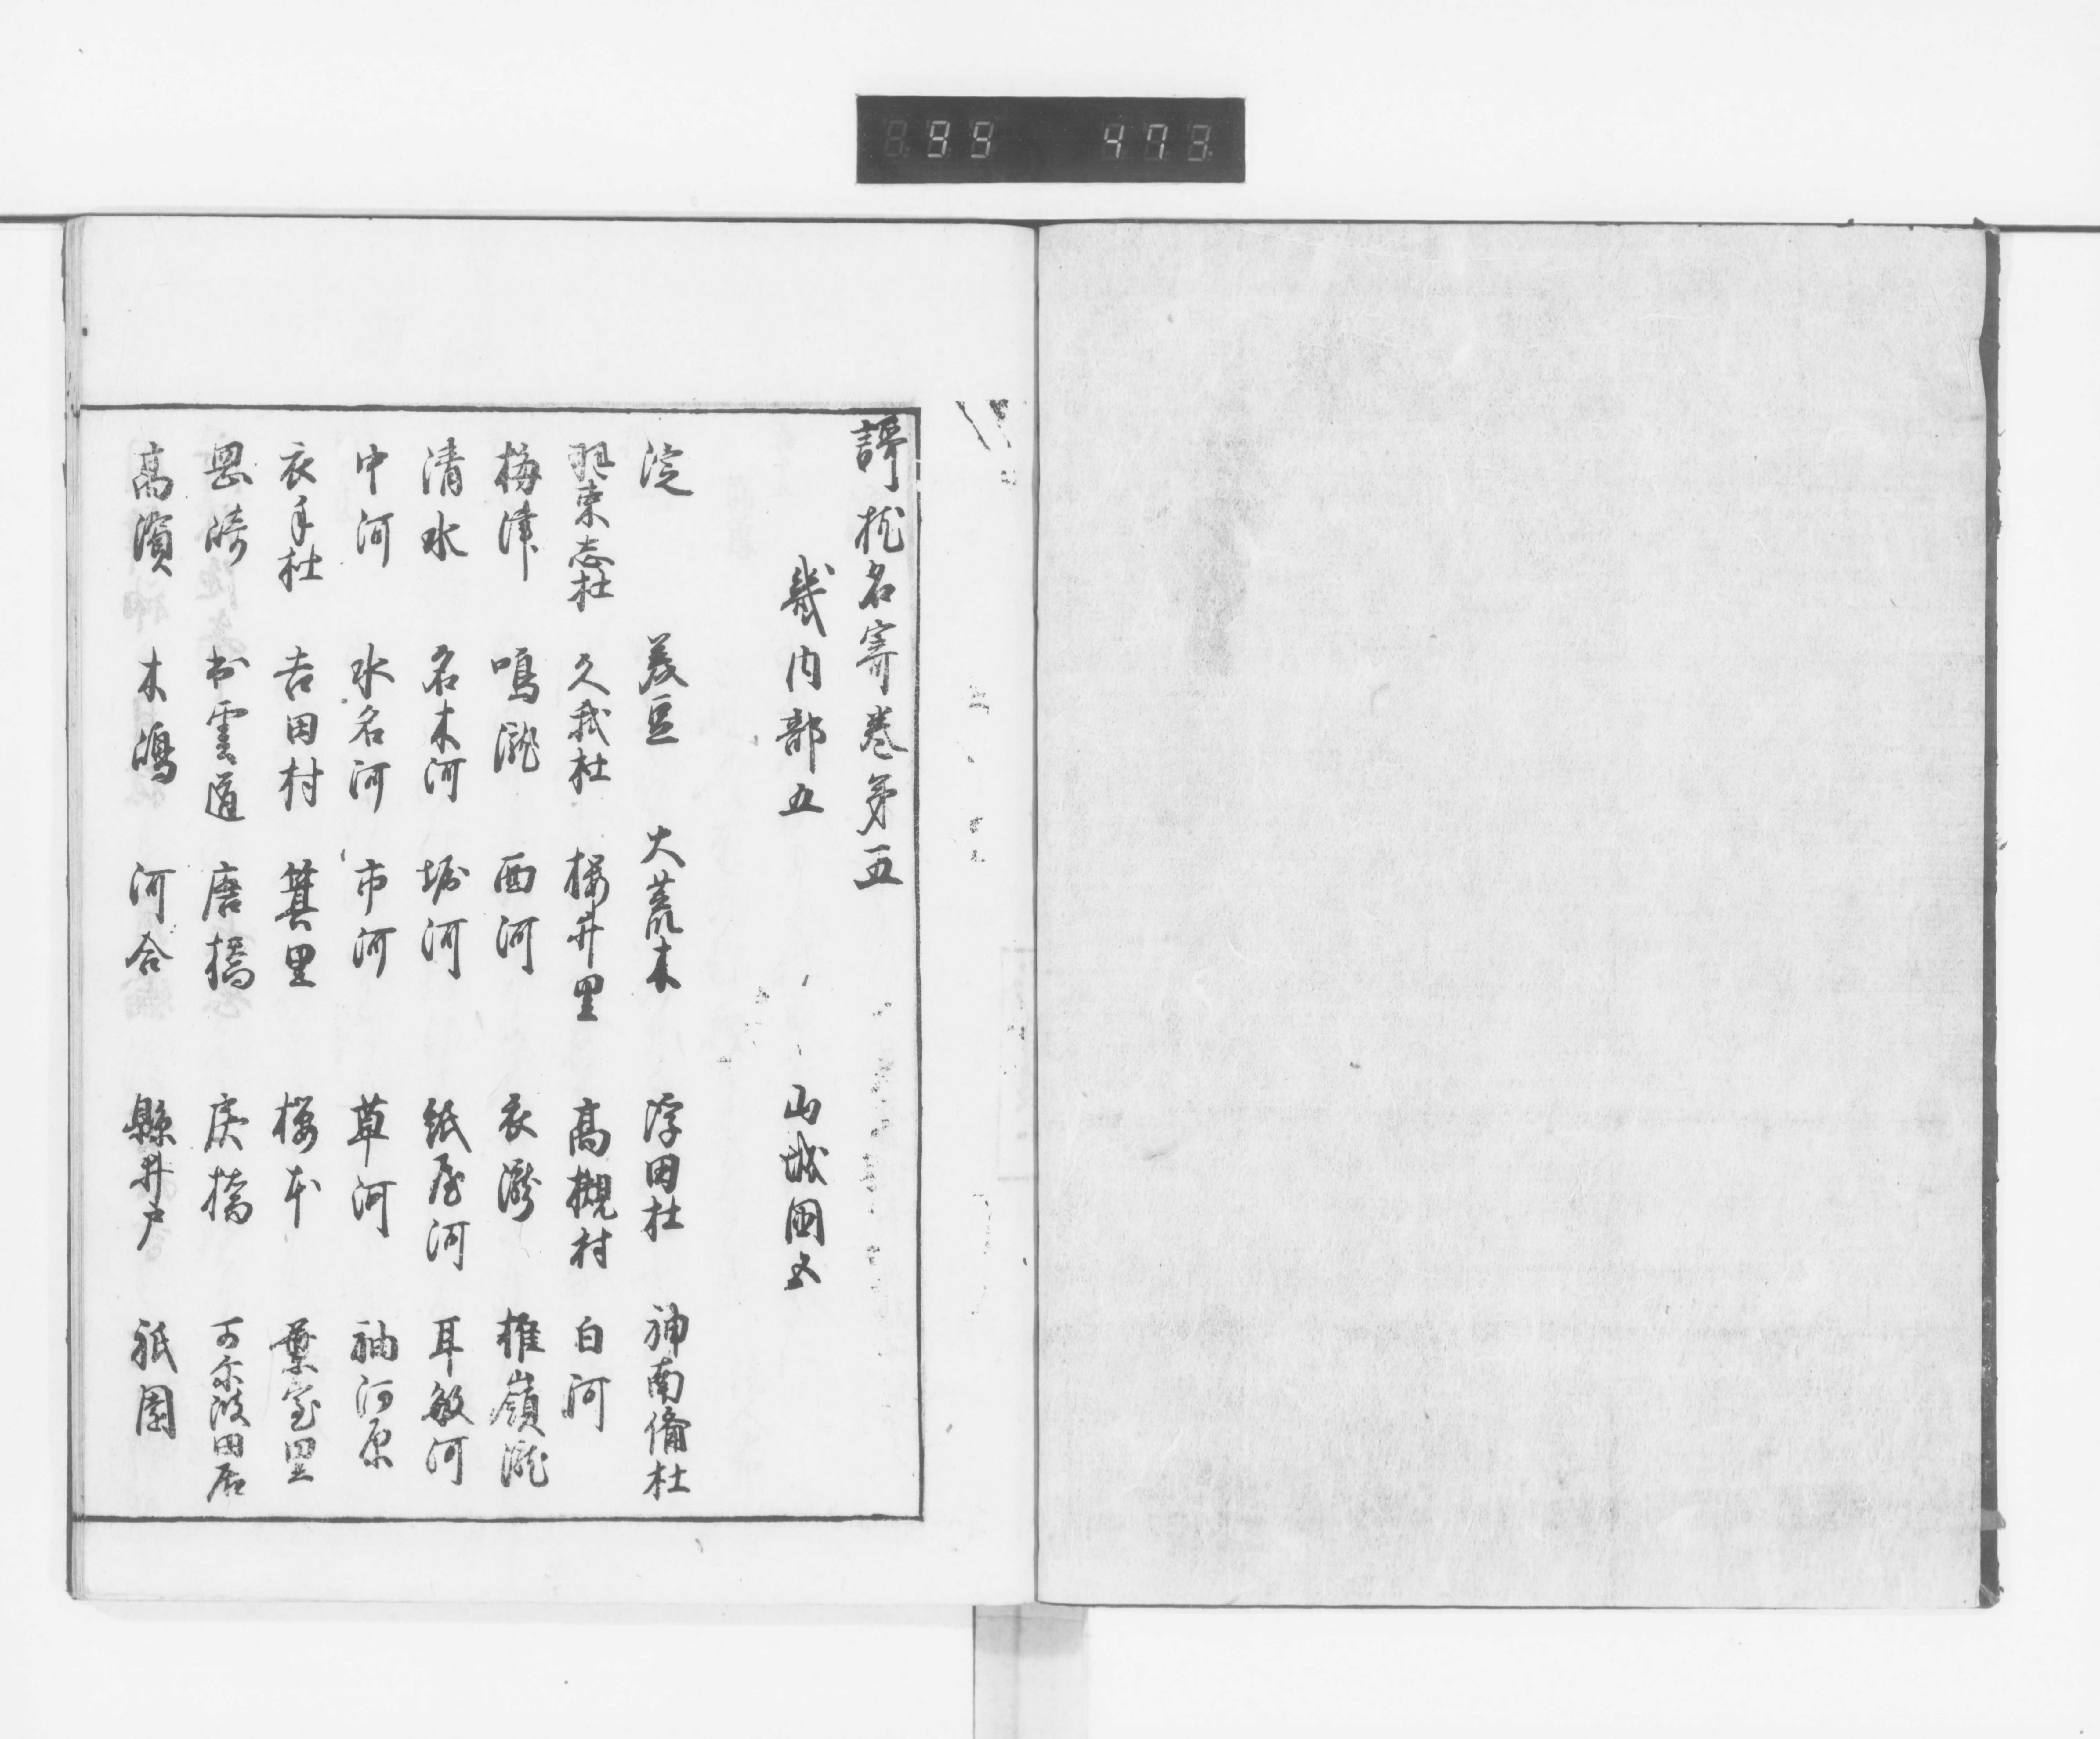 謌枕名寄巻第五
畿内部五 山城国五
淀 美豆 大荒木 浮田杜 神南備杜
羽束志杜 久我杜 桜井里 高槻村 白河
梅津 鳴滝 西河 衣瀧 椎嶺瀧
清水 名木河 堀河 紙屋河 耳敏河
中河 水名河 市河 草河 袖河原
衣手杜 吉田村 箕里 桜本 葉室里
嶋 出雲道 唐橋 戻橋
高濱 木嶋 河合 縣井戸 祇園
99 473